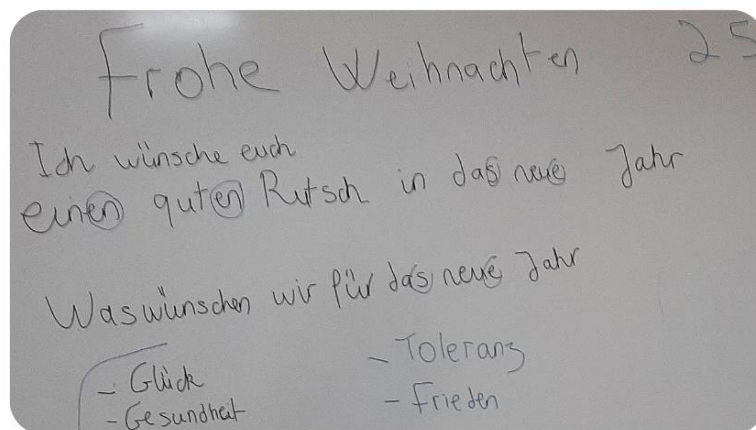 Frohe Weihnachten 25
Ich wünsche euch
einen guten Rutsch in das neue Jahr
Was wünschen wir für das neue Jahr
- Glück
- Gesundheit
- Toleranz
- Frieden